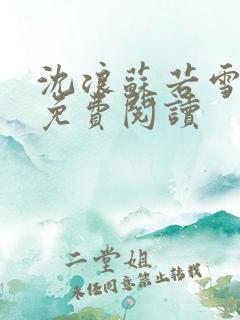 沈浪蘇若雪
免費閱讀
二堂姐
未经同意禁止转载